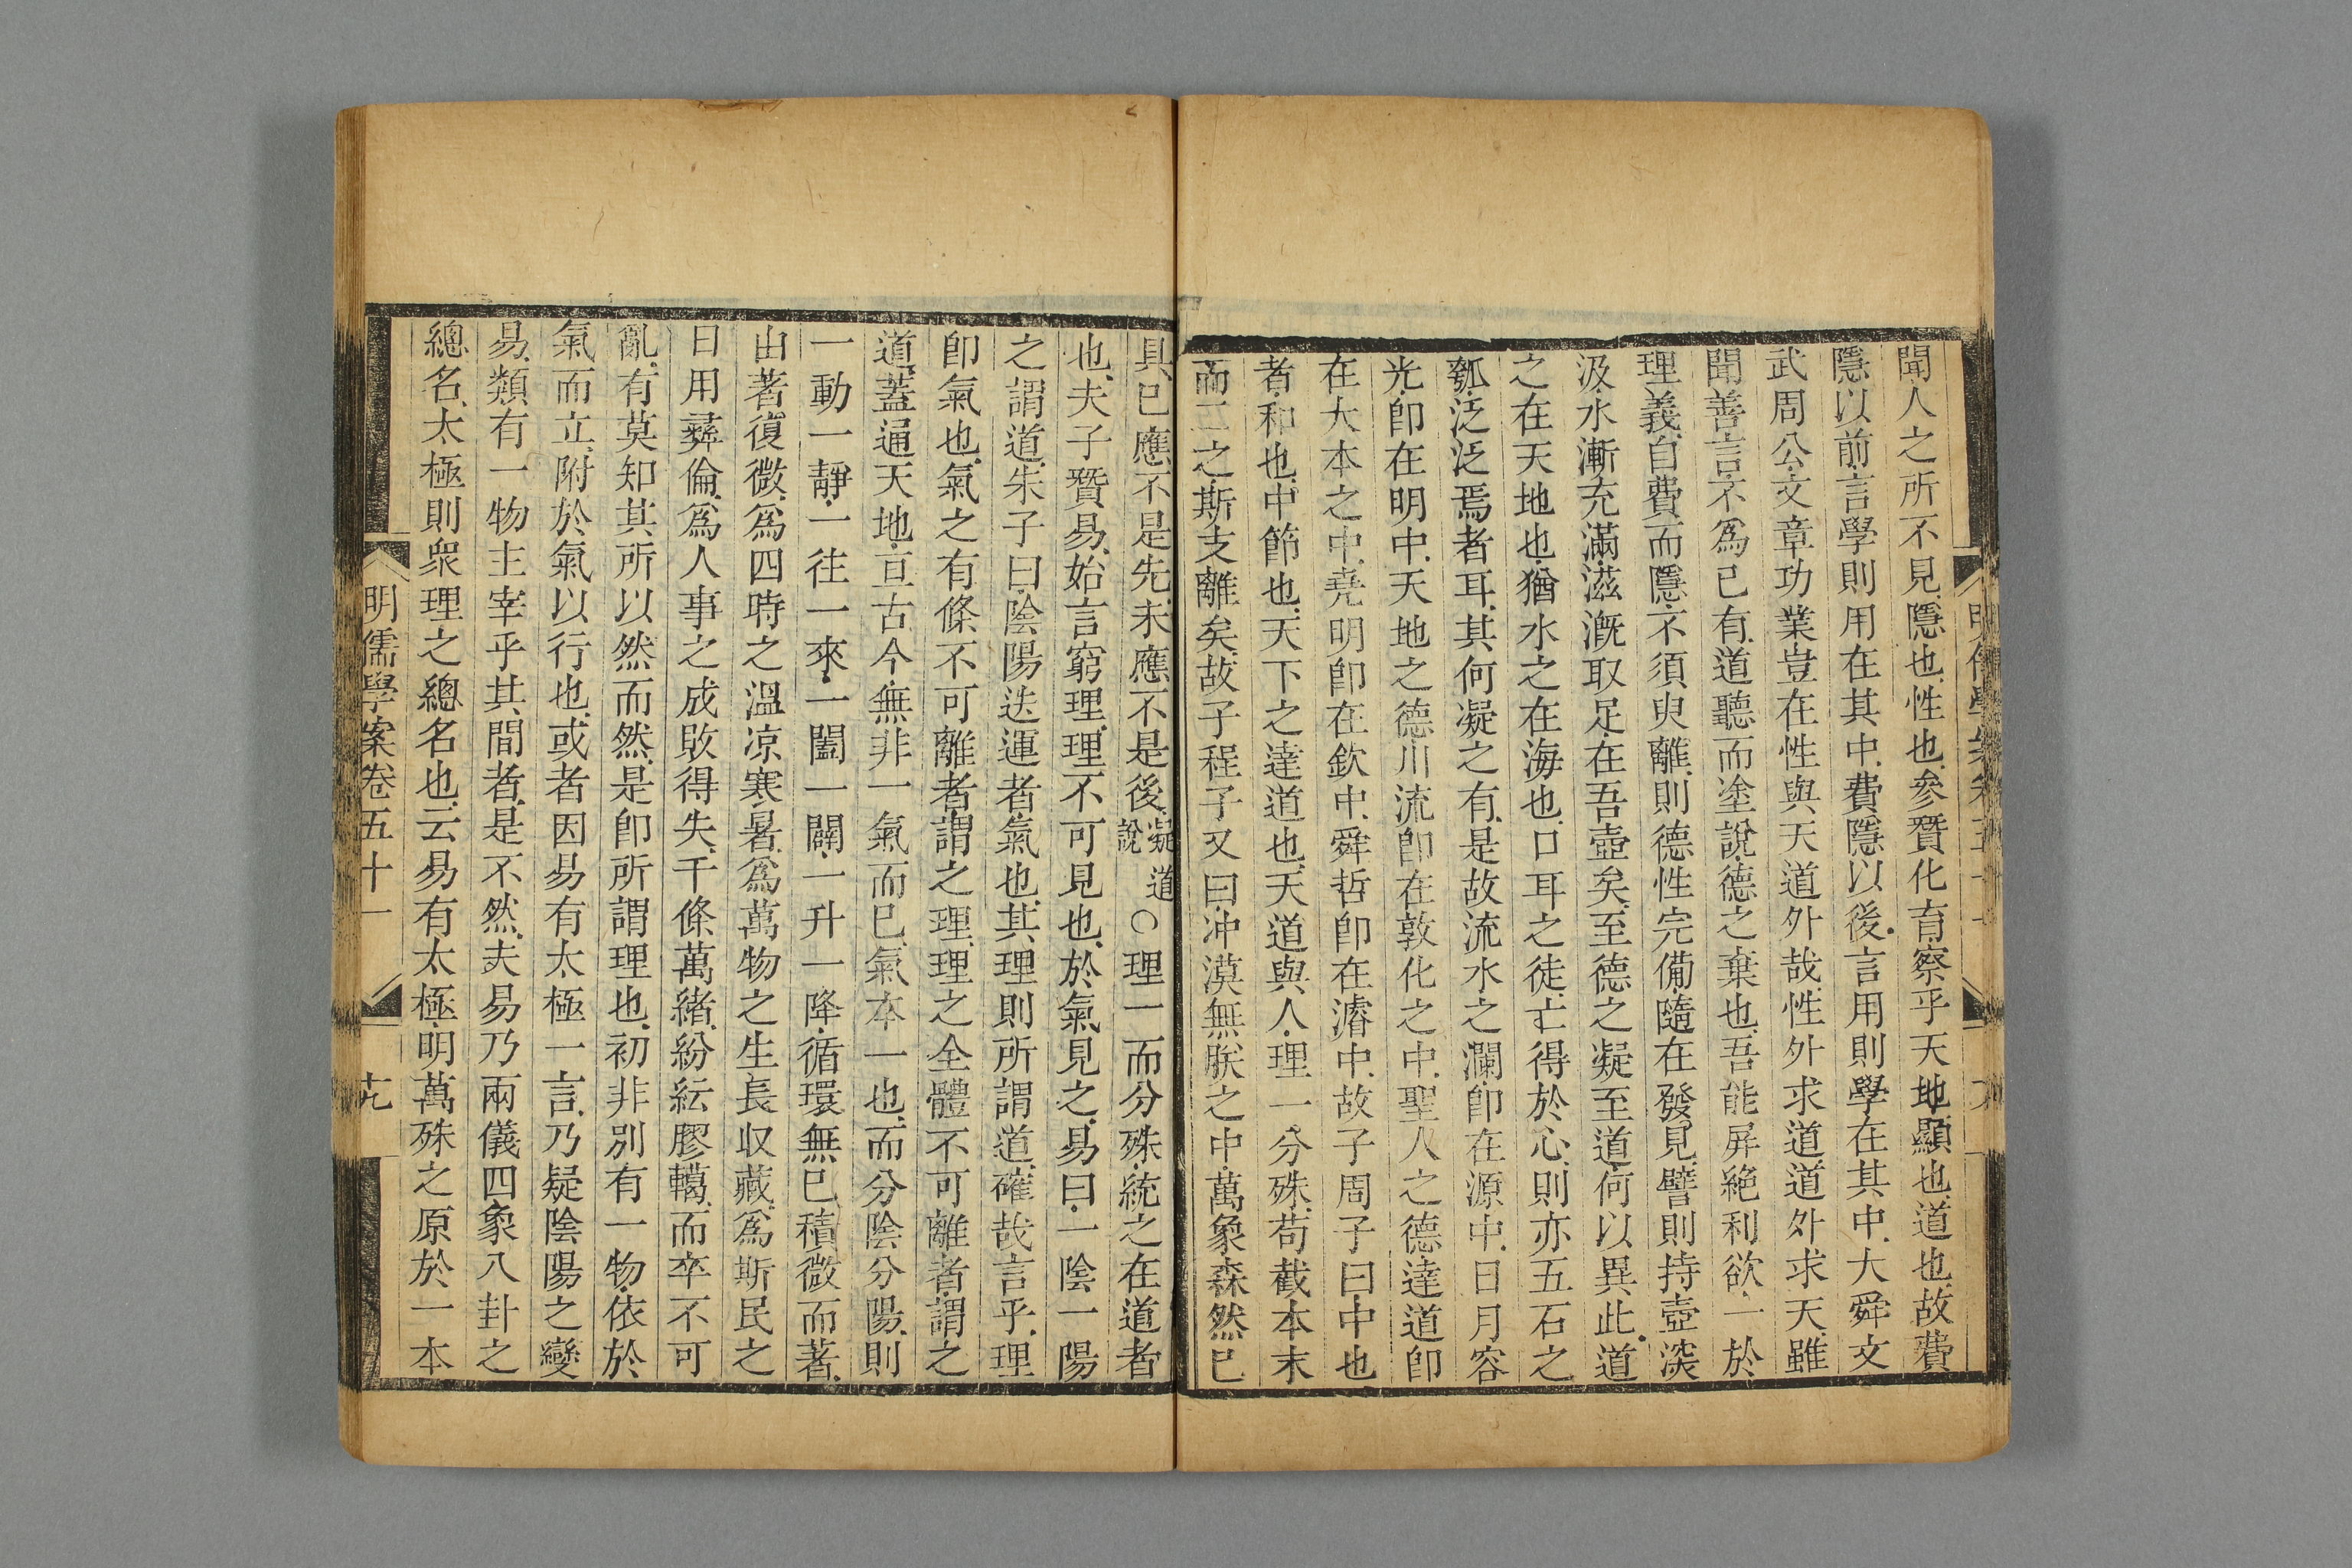 聞人之所不見隱也性也參贊化育察乎天地顯也道也故費
隱以前言學則用在其中費隱以後言用則學在其中大舜文
武周公文章功業豈在性與天道外哉性外求道道外求天雖
聞善言不爲己有道聽而塗說德之棄也吾能屏絶利欲一於
理義自費而隱不須臾離則德性完備隨在發見譬則持壺淡
汲水漸充滿滋漑取足在吾壺矣至德之凝至道何以異此道
之在天地也猶水之在海也口耳之徒亡得於心則亦五石之
瓠泛泛焉者耳其何凝之有是故流水之瀾卽在源中日月容
光卽在明中天地之德川流卽在敦化之中聖人之德達道卽
在大本之中堯明卽在欽中舜哲卽在濬中故子周子曰中也
者和也中節也天下之達道也天道與人理一分殊苟截本末
而二之斯支離矣故子程子又曰冲漠無朕之中萬象森然已
具已應不是先未應不是後凝道說〇理一而分殊統之在道者
也夫子贊易始言窮理理不可見也於氣見之易曰一陰一陽
之謂道朱子曰陰陽迭運者氣也其理則所謂道確哉言乎理
卽氣也氣之有條不可離者謂之理理之全體不可離者謂之
道蓋通天地亘古今無非一氣而已氣本一也而分陰分陽則
一動一靜一往一來一闔一闢一升一降循環無已積微而著
由著復微爲四時之溫凉寒暑爲萬物之生長収藏爲斯民之
日用彞倫爲人事之成敗得失千條萬緒紛紜膠轕而卒不可
亂有莫知其所以然而然是卽所謂理也初非別有一物依於
氣而立附於氣以行也或者因易有太極一言乃疑陰陽之變
易類有一物主宰乎其間者是不然夫易乃兩儀四象八卦之
總名太極則衆理之總名也云易有太極明萬殊之原於一本
明儒學案卷五十一